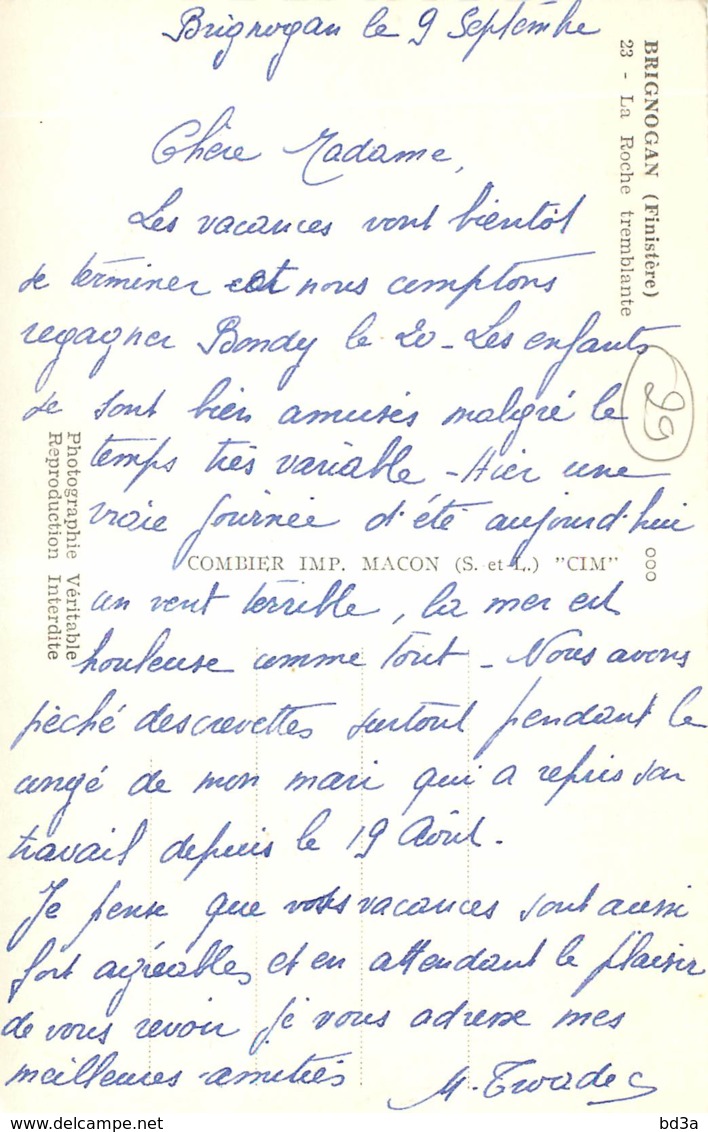 Brignogan le 9 Septembre
Chère Madame,
Les vacances vont bientôt
se terminer et nous comptons
regagner Bondy le 20 - Les enfants
se sont bien amusés malgré le
temps très variable - Hier une
vraie journée d'été aujourd'hui
un vent terrible, la mer est
houleuse comme tout - Nous avons
pêché des crevettes surtout pendant le
congé de mon mari qui a repris son
travail depuis le 19 Août.
Je pense que vos vacances sont aussi
fort agréables et en attendant le plaisir
de vous revoir je vous adresse mes
meilleures amitiés
BRIGNOGAN (Finistère)
23 - La Roche tremblante
29
Photographie Véritable
Reproduction Interdite
COMBIER IMP. MACON (S. et L.) "CIM"
ooo
bd3a